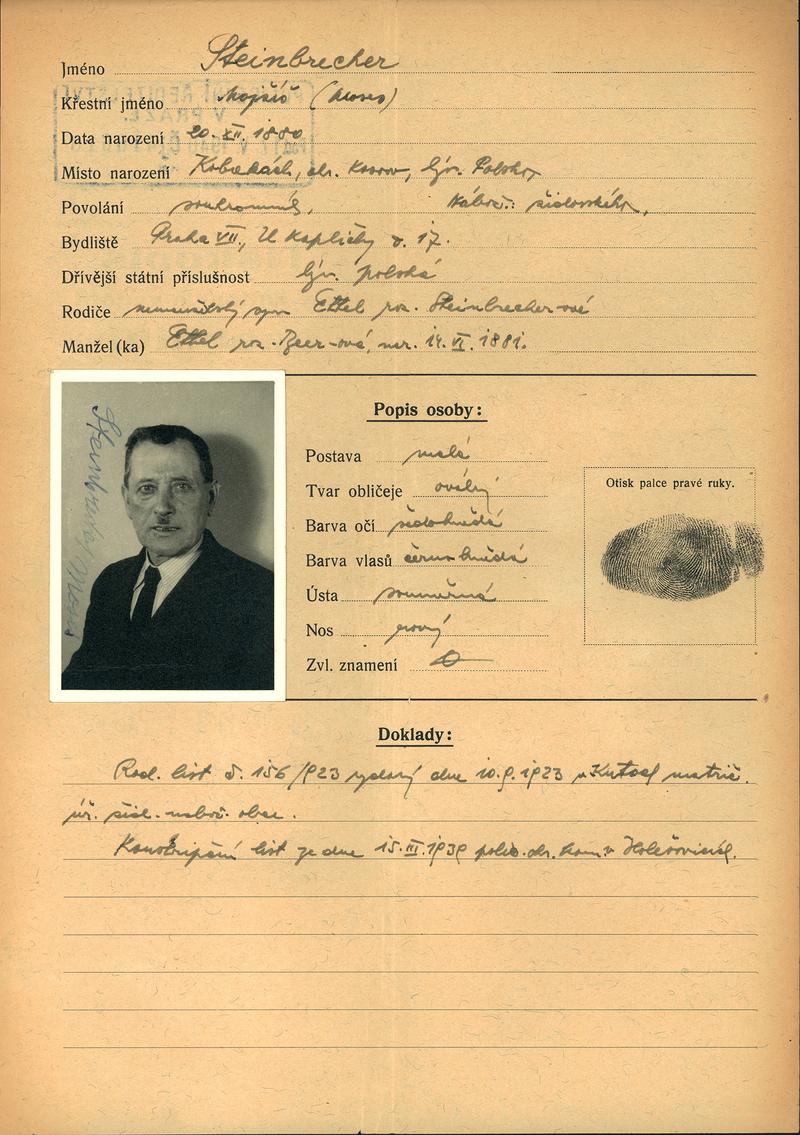 Jméno Steinbrecher
Křestní jméno Mojšiš (Moses)
Data narození 20. XII. 1880
Místo narození okr. Kosov, býv. Polsko,
Povolání soukromník, Nábož.: židovského,
Bydliště Praha VII., U Kapličky č. 17.
Dřívější státní příslušnost býv. polská
Rodiče nemanželský syn Ettel roz. Steinbrecher-ové
Manžel (ka) Ettel roz. Beer-ová, nar. 14. VI. 1881.
Popis osoby:
Postava malá
Tvar obličeje oválný
Barva očí šedohnědá
Barva vlasů černohnědá
Ústa souměrná
Nos rovný
Zvl. znamení
Otisk palce pravé ruky.
Steinbrecher Moses
Doklady:
Rod. list č. 156/923 vydaný dne 10.9.1923 v matrič.
úř. žid. nábož. obce.
Konskripční list ze dne 15. III. 1939 polic. v Holešovicích.